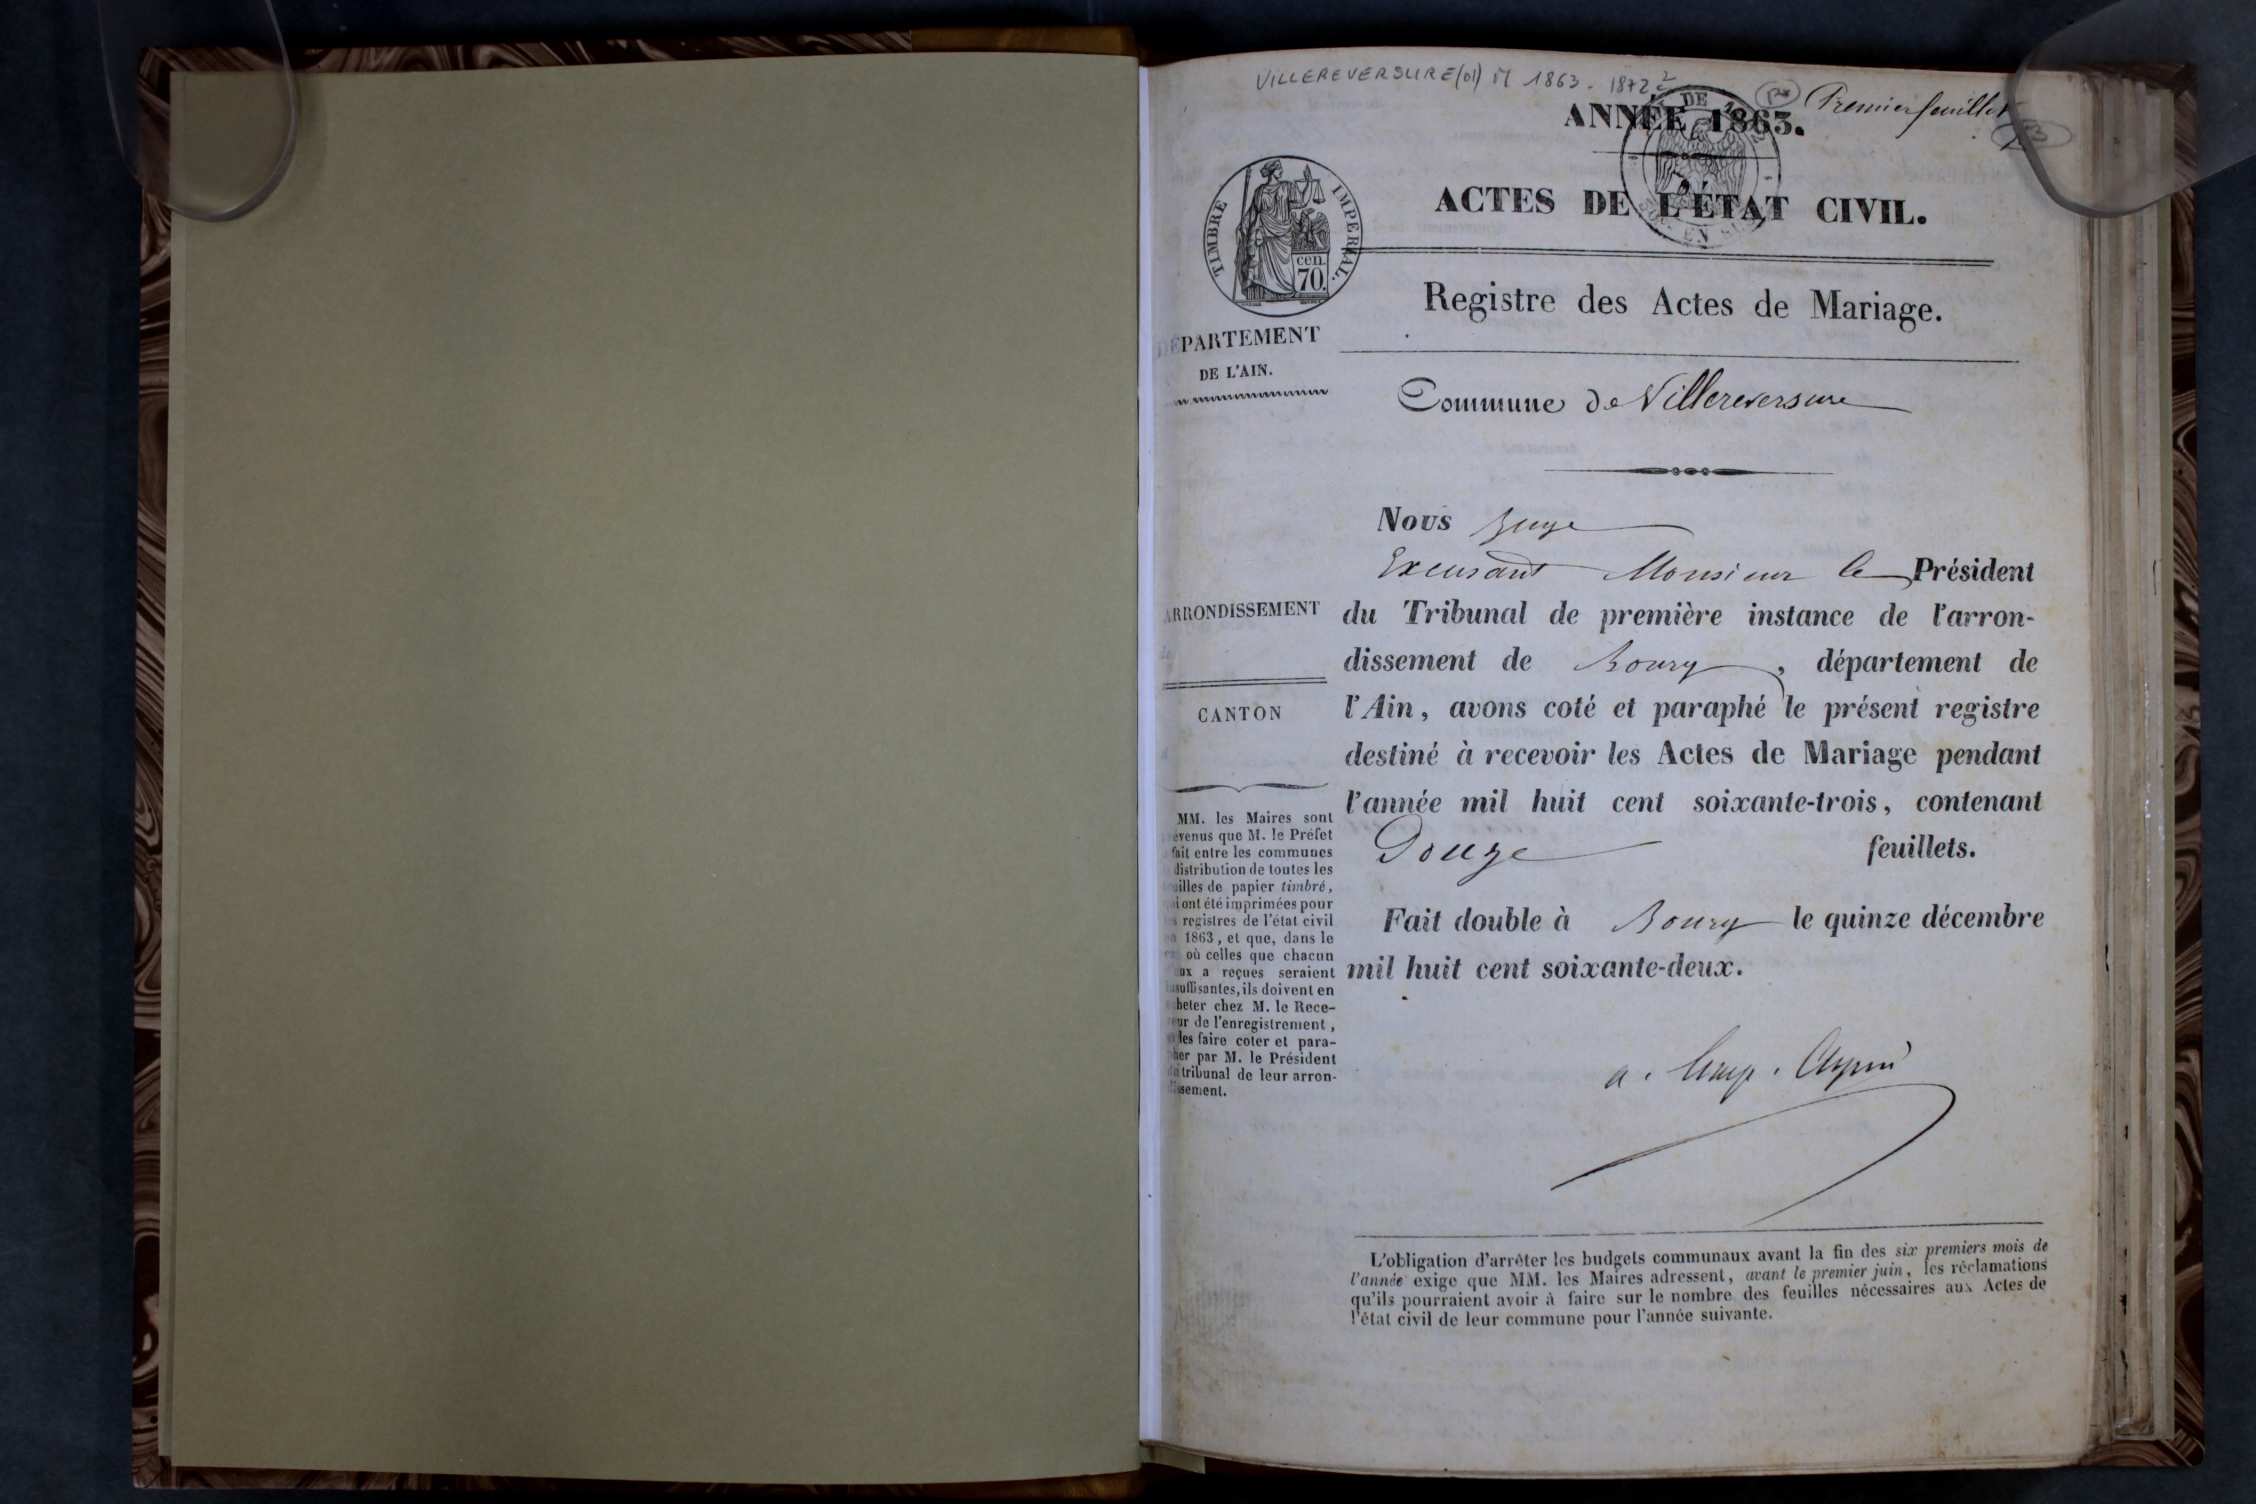 VILLEREVERSURE (01) M 1863 - 1872
Premier feuillet
ANNÉE 1863.
ACTES DE L'ÉTAT CIVIL.
TIMBRE IMPERIAL.
cen.
70.
Registre des Actes de Mariage.
DÉPARTEMENT
DE L'AIN.
Commune de Villereversure
Nous Juge
Excusant Monsieur le Président
ARRONDISSEMENT
du Tribunal de première instance de l'arron-
dissement de Bourg, département de
l'Ain, avons coté et paraphé le présent registre
CANTON
destiné à recevoir les Actes de Mariage pendant
l'année mil huit cent soixante-trois, contenant
Douze feuillets.
Fait double à Bourg le quinze décembre
mil huit cent soixante-deux.
MM. les Maires sont
évenus que M. le Préfet
fait entre les communes
distribution de toutes les
uilles de papier timbré,
i ont été imprimées pour
s registres de l'état civil
1863, et que, dans le
où celles que chacun
ux a reçues seraient
suffisantes, ils doivent en
heter chez M. le Rece-
eur de l'enregistrement,
les faire coter et para-
her par M. le Président
tribunal de leur arron-
issement.
L'obligation d'arrêter les budgets communaux avant la fin des six premiers mois de
l'année exige que MM. les Maires adressent, avant le premier juin, les réclamations
qu'ils pourraient avoir à faire sur le nombre des feuilles nécessaires aux Actes de
l'état civil de leur commune pour l'année suivante.